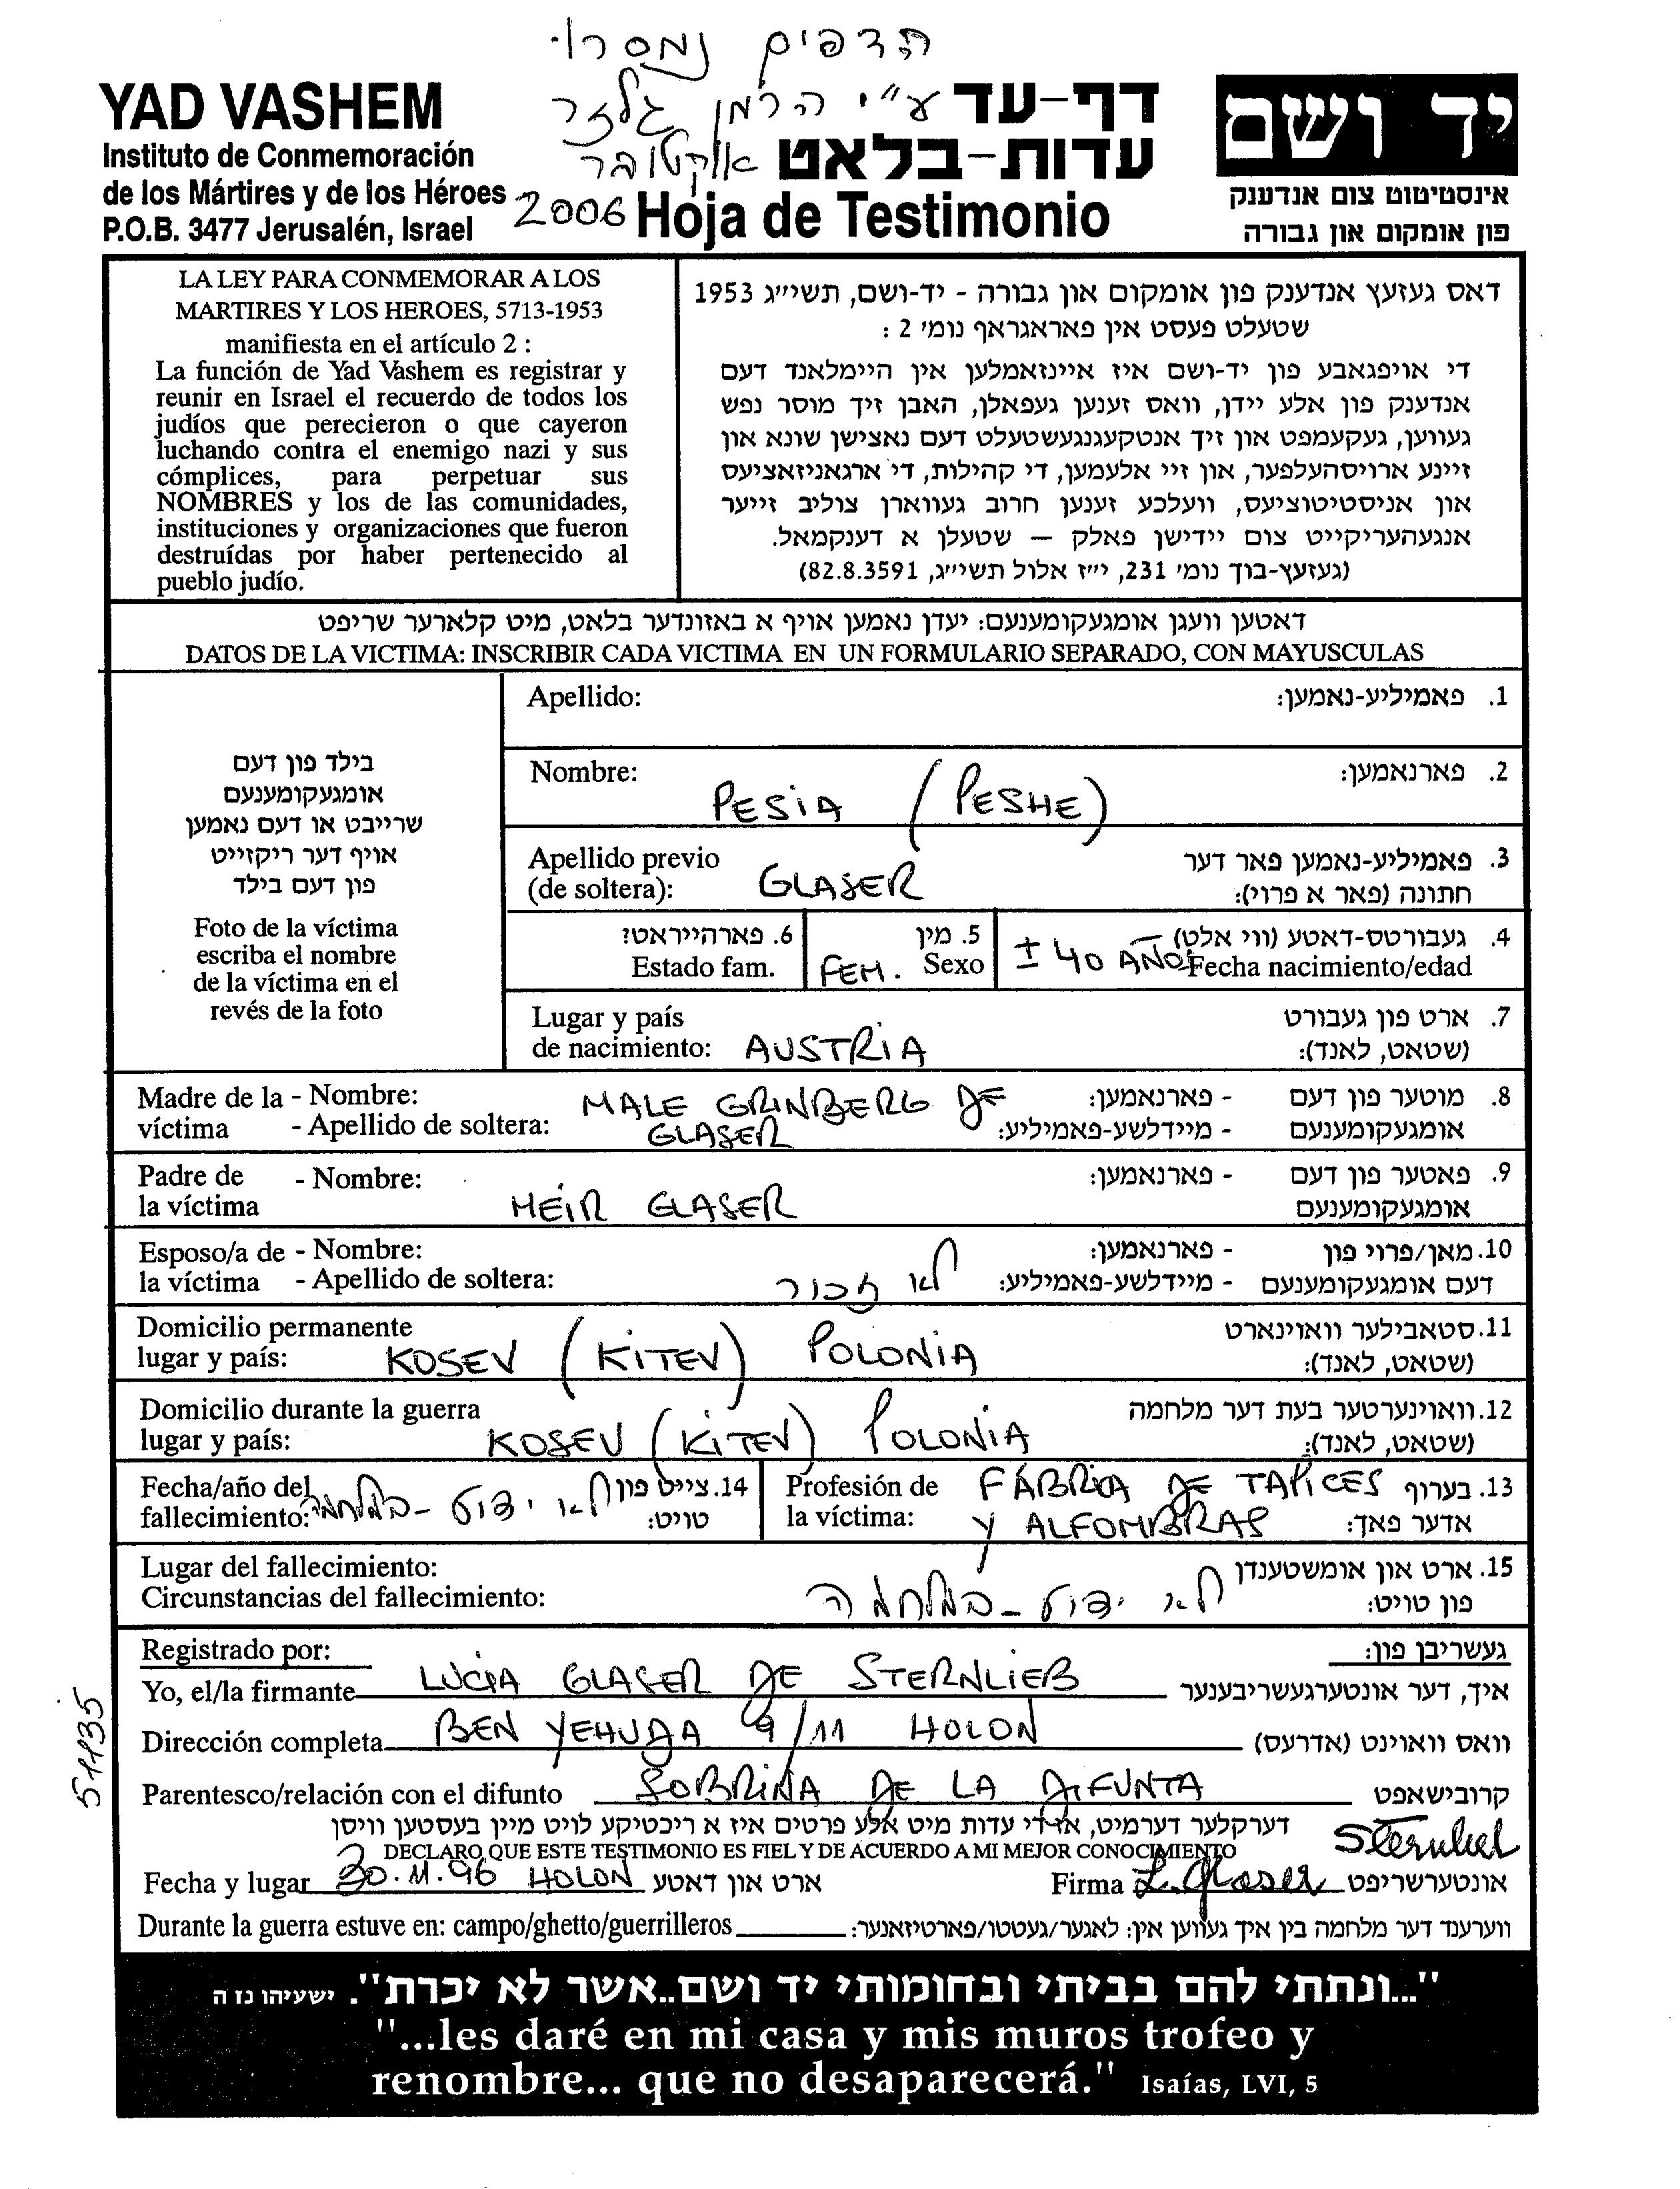 הדפים נמסרו
ע"י הרמן גלזר
אוקטובר
2006
YAD VASHEM
Instituto de Conmemoración
de los Mártires y de los Héroes
P.O.B. 3477 Jerusalén, Israel
דף-עד
עדות-בלאט
Hoja de Testimonio
יד ושם
אינסטיטוט צום אנדענק
פון אומקום און גבורה
LA LEY PARA CONMEMORAR A LOS
MARTIRES Y LOS HEROES, 5713-1953
manifiesta en el artículo 2 :
La función de Yad Vashem es registrar y
reunir en Israel el recuerdo de todos los
judíos que perecieron o que cayeron
luchando contra el enemigo nazi y sus
cómplices, para perpetuar sus
NOMBRES y los de las comunidades,
instituciones y organizaciones que fueron
destruídas por haber pertenecido al
pueblo judío.
דאס געזעץ אנדענק פון אומקום און גבורה - יד-ושם, תשי״ג 1953
שטעלט פעסט אין פאראגראף נומ׳ 2 :
די אויפגאבע פון יד-ושם איז איינזאמלען אין היימלאנד דעם
אנדענק פון אלע יידן, וואס זענען געפאלן, האבן זיך מוסר נפש
געווען, געקעמפט און זיך אנטקעגנגעשטעלט דעם נאצישן שונא און
זיינע ארויסהעלפער, און זיי אלעמען, די קהילות, די ארגאניזאציעס
און אניסטיטוציעס, וועלכע זענען חרוב געווארן צוליב זייער
אנגעהעריקייט צום יידישן פאלק – שטעלן א דענקמאל.
(געזעץ-בוך נומ׳ 231, י״ז אלול תשי״ג, 82.8.3591)
דאטען וועגן אומגעקומענעם: יעדן נאמען אויף א באזונדער בלאט, מיט קלארער שריפט
DATOS DE LA VICTIMA: INSCRIBIR CADA VICTIMA EN UN FORMULARIO SEPARADO, CON MAYUSCULAS
בילד פון דעם
אומגעקומענעם
שרייבט או דעם נאמען
אויף דער ריקזייט
פון דעם בילד
Foto de la víctima
escriba el nombre
de la víctima en el
revés de la foto
Apellido: 1. פאמיליע-נאמען:
Nombre: PESIA (PESHE) 2. פארנאמען:
Apellido previo 3. פאמיליע-נאמען פאר דער
(de soltera): GLASER חתונה (פאר א פרוי):
6. פארהייראט? 5. מין 4. געבורטס-דאטע (ווי אלט)
Estado fam. FEM. Sexo ± 40 AÑOS Fecha nacimiento/edad
Lugar y país 7. ארט פון געבורט
de nacimiento: AUSTRIA (שטאט, לאנד):
Madre de la - Nombre: MALE GRINBERG DE - פארנאמען: 8. מוטער פון דעם
víctima - Apellido de soltera: GLASER - מיידלשע-פאמיליע: אומגעקומענעם
Padre de - Nombre: - פארנאמען: 9. פאטער פון דעם
la víctima MEIR GLASER אומגעקומענעם
Esposo/a de - Nombre: - פארנאמען: 10. מאן/פרוי פון
la víctima - Apellido de soltera: לא זכור - מיידלשע-פאמיליע: דעם אומגעקומענעם
Domicilio permanente 11. סטאבילער וואוינארט
lugar y país: KOSEV (KITEV) POLONIA (שטאט, לאנד):
Domicilio durante la guerra 12. וואוינערטער בעת דער מלחמה
lugar y país: KOSEV (KITEV) POLONIA (שטאט, לאנד):
Fecha/año del 14. צייט פון Profesión de FÁBRICA DE TAPICES 13. בערוף
fallecimiento: לא ידוע - במלחמה טויט: la víctima: Y ALFOMBRAS אדער פאך:
Lugar del fallecimiento: 15. ארט און אומשטענדן
Circunstancias del fallecimiento: לא ידוע - במלחמה פון טויט:
Registrado por: געשריבן פון:
Yo, el/la firmante LUCIA GLASER DE STERNLIEB איך, דער אונטערגעשריבענער
Dirección completa BEN YEHUDA 9/11 HOLON וואס וואוינט (אדרעס)
Parentesco/relación con el difunto SOBRINA DE LA DIFUNTA קרובישאפט
דערקלער דערמיט, אז די עדות מיט אלע פרטים איז א ריכטיקע לויט מיין בעסטען וויסן
DECLARO QUE ESTE TESTIMONIO ES FIEL Y DE ACUERDO A MI MEJOR CONOCIMIENTO
Fecha y lugar 30.11.96 HOLON ארט און דאטע Firma L. Glaser אונטערשריפט
Durante la guerra estuve en: campo/ghetto/guerrilleros ווערענד דער מלחמה בין איך געווען אין: לאגער/געטטו/פארטיזאנער:
51135
"...ונתתי להם בביתי ובחומותי יד ושם..אשר לא יכרת". ישעיהו נז ה
"...les daré en mi casa y mis muros trofeo y
renombre... que no desaparecerá." Isaías, LVI, 5